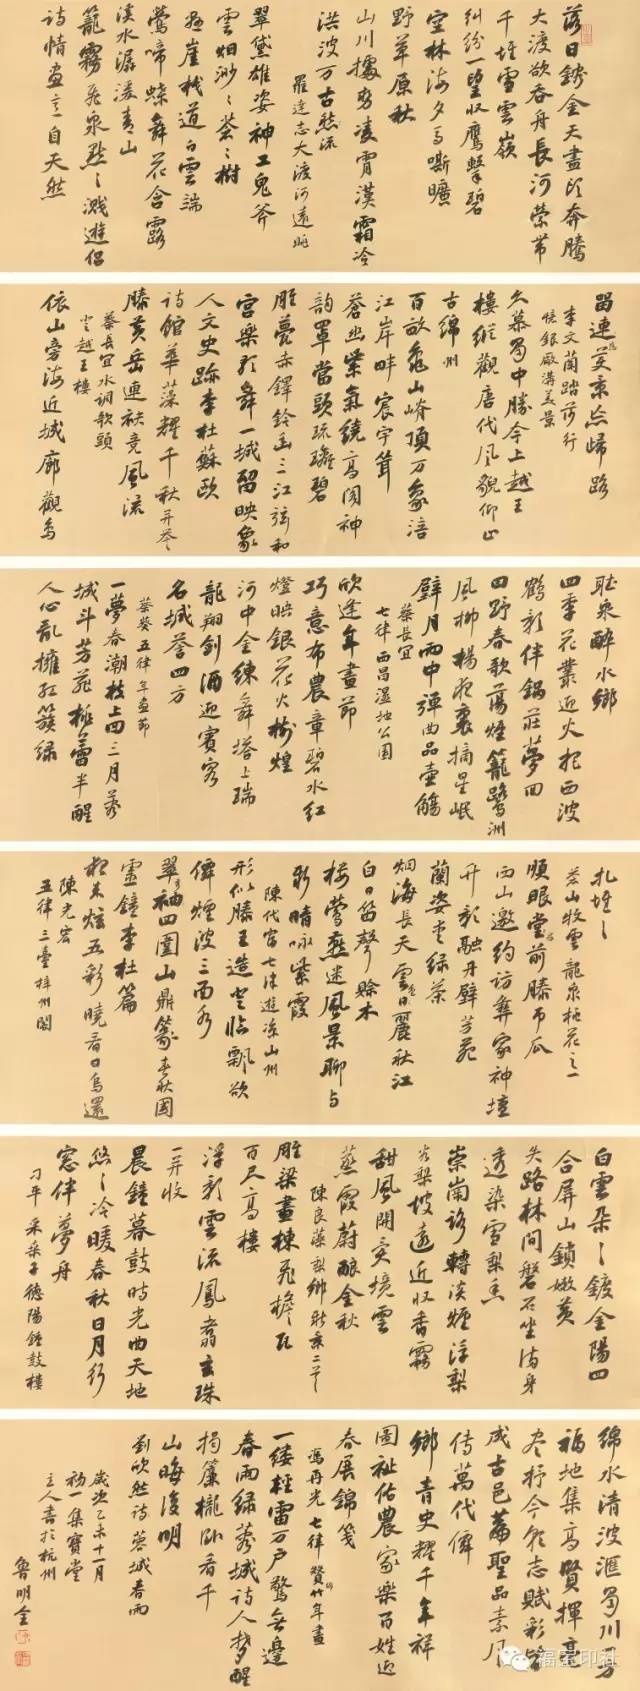 落日鎔金天盡頭奔騰
大渡欲吞舟長河縈帶
千堆雪雲嶺
糾紛一望收鷹擊碧
空林海夕馬嘶曠
野草原秋
山川據勢凌霄漢霜冷
洪波万古愁流
羅達志大渡河遠眺
翠黛雄姿神工鬼斧
雲烟渺渺荟荟樹
懸崖棧道白雲端
鶯啼蝶舞花含露
溪水潺湲青山
籠霧飛泉點點濺遊侶
詩情畫意自天然
留連美京忘歸路
李文蘭踏莎行
樓銀廠溝美景
久慕蜀中勝今上越王
樓縱觀唐代風貌仰止
古綿州
百畝龜山嵴頂万象涪
江岸畔宸宇聳
蒼幽紫氣繞高閣神
韵罩當頭琉璃碧
雕甍赤鐸鈴玉三江弦和
宮樂歌舞一城留映象
人文史跡李杜蘇歐
詩館華藻耀千秋并举
滕黃岳連袂竞風流
蔡長宜水調歌頭
登越王樓
依山旁海近城廓觀鳥
耽泉醉水鄉
四季花叢近火把西波
鶴彩伴鍋莊夢回
田野春歌蕩煙籠鷺洲
風柳楊夜裏摘星岷
壁月雨中彈曲品壺觴
蔡長宜
七律西昌濕地公園
欣逢年畫節
巧意布農章碧水紅
燈映銀花火樹煌
河中金練舞塔上瑞
龍翔劍酒迎賓客
名城譽四方
蔡葵五律年畫節
一夢春潮枝上回三月蓉
城斗芳菲桃蕾半醒
人心亂擁紅簇綠
扎堆堆
蓉山牧雲龍泉桃花之一
順眼堂前滕市瓜
西山邀約訪彝家神壇
升彩融丹壁芳苑
蘭姿老綠茶
烟海長天雲日麗秋江
白日笛聲賒木
樓鶯燕迷風景聊与
彩晴咏紫霞
陳代富七律遊凉山州
形似滕王造登臨飄欲
僊煙波三面水
翠袖四圍山鼎篆春秋國
靈鐘李杜篇
樓未炫五彩曉看日鳥還
陳光宏
五律三臺梓州閣
白雲朵朵鍍金陽四
合屏山鎖嫩黃
失路林間磐石坐滿身
透染雪梨香
崇崗路轉淡煙浮梨
谷梨坡遠近收香霧
甜風開夾境雲
蒸霞蔚釀金秋
陳良藻梨鄉彩奏二首
雕梁畫棟飛檐瓦
百尺高樓
浮彩雲流鳳翥玄珠
一并收
晨鐘暮鼓時光曲天地
悠悠冷暖春秋日月行
窓伴夢舟
刁平采桑子德陽鐘鼓樓
綿水清波滙蜀川男
福地集高賢揮亳
盡抒今朝志賦彩皆
成古邑篇聖品素風
傳萬代僊
鄉青史耀千年祥
圖祉佑農家樂百姓迎
春展錦箋
馮再光七律贊竹年畫
一缕輕雷万戶驚無邊
春雨綠蓉城詩人夢醒
捲簾櫳卧看千
山晦復明
劉欣然詩蓉城春雨
歲次乙未十一月
初一集寶堂
主人書於杭州
魯明金
福堂印社